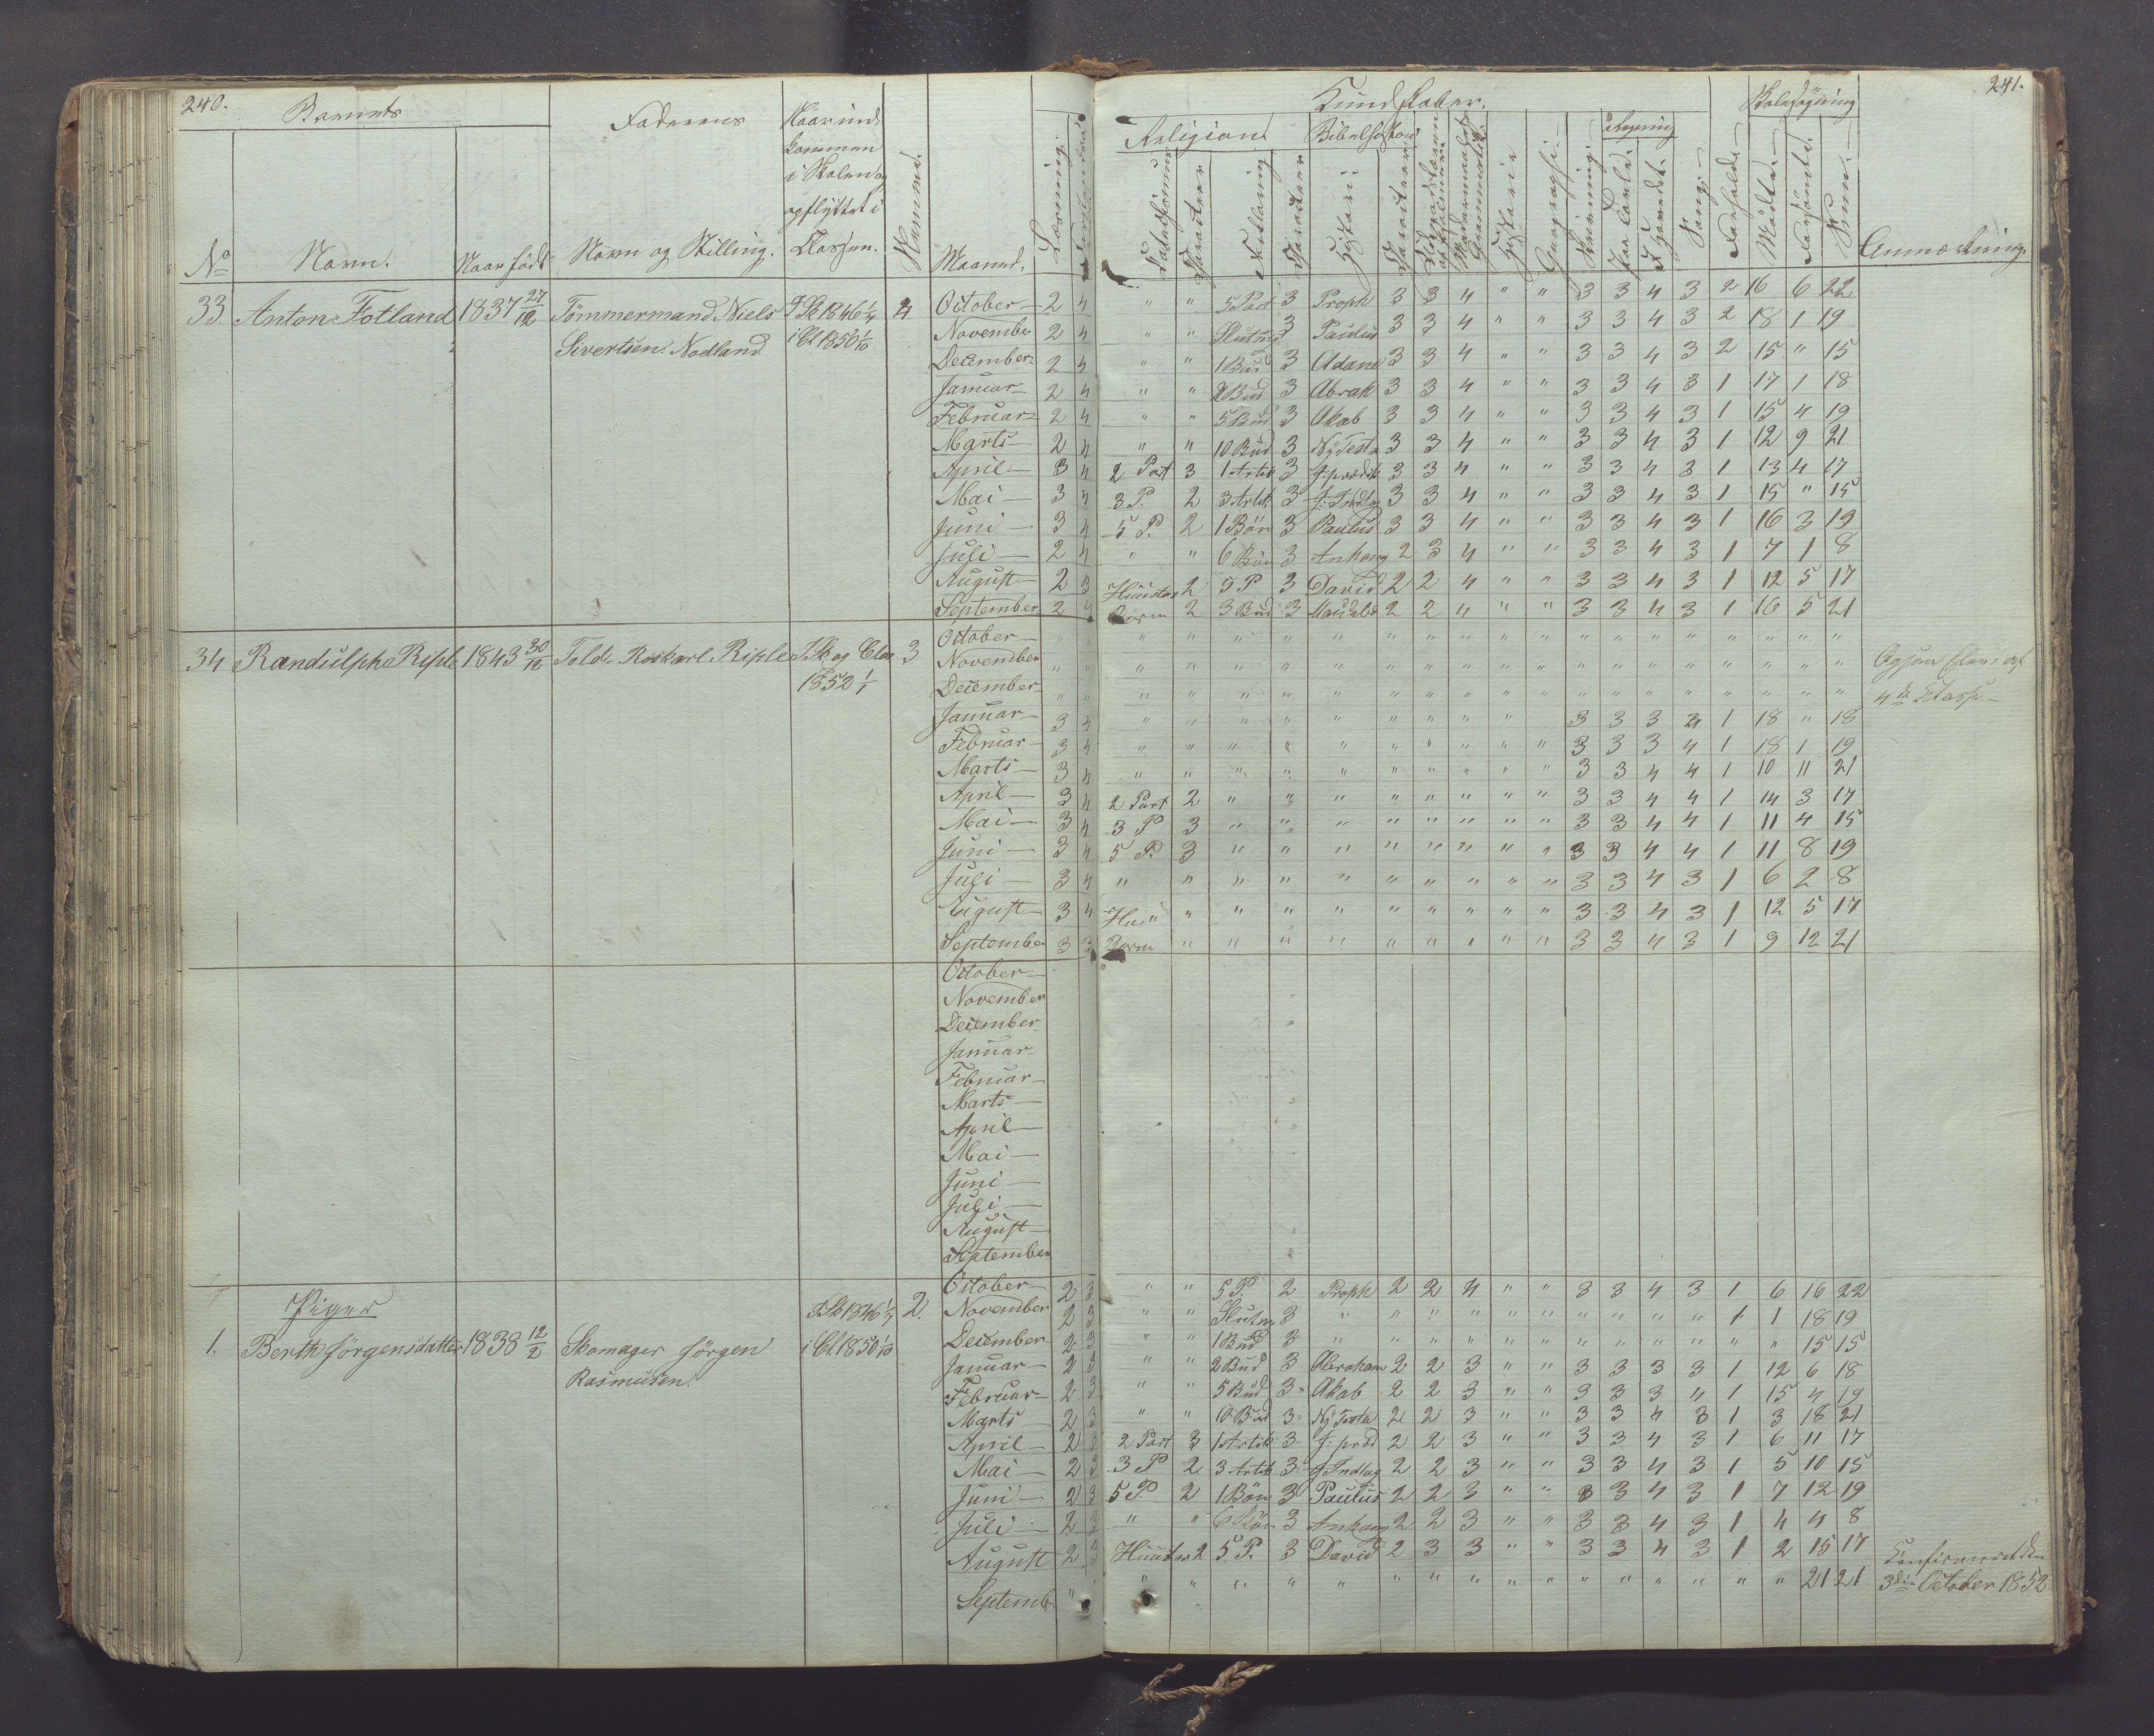 240.
Barnets
Faderens
Naar ind-
kommen
i Skolen og
opflyttet i
Classen.
No
Navn.
Naar født
Navn og Stilling.
Nummer.
Maaned.
Læsning
33. Anton Fotland 1837 27/12 Tömmermand Niels
Sivertsen Nodland
i Cl 1850 1/10
4
October 2 4
November 2 4
December 2 4
Januar 2 4
Februar 2 4
Marts 2 4
April 3 4
Mai 3 4
Juni 3 4
Juli 2 4
August 2 3
September 2 4
34 Randulph Riple 1843 30/12 Told. Roskarl Riple I Sk og Clas
1852 1/1
3
October " "
November " "
December " "
Januar 3 4
Februar 3 4
Marts 3 4
April 3 4
Mai 3 4
Juni 3 4
Juli 3 4
August 3 4
September 3 3
October
November
December
Januar
Februar
Marts
April
Mai
Juni
Juli
August
September
Piger
1. Berthe Jörgensdatter 1838 12/2 Skomager Jörgen
Rasmusen.
i Cl. 1850 1/10
2.
October 2 3
November 2 3
December 2 3
Januar 2 3
Februar 2 3
Marts 2 3
April 2 3
Mai 2 3
Juni 2 3
Juli 2 3
August 2 3
Septemb "
241.
Kundskaber.
Religion
Bibelhistorie
Regning
Skolesøgning
Historie
Geographi
Skrivning
Sang
Forhold
Mødte
Forsømte
Sum
Anmærkning.
" " 5 Part 3 Proph 3 3 4 " " 3 3 4 3 2 16 6 22
" " Slutng 3 Paulus 3 3 4 " " 3 3 4 3 2 18 1 19
" " 1 Bud 3 Adam 3 3 4 " " 3 3 4 3 2 15 " 15
" " 2 Bud 3 Abrah 3 3 4 " " 3 3 4 3 1 17 1 18
" " 5 Bud 3 Akab 3 3 4 " " 3 3 4 3 1 15 4 19
" " 10 Bud 3 Ny Testa 3 3 4 " " 3 3 4 3 1 12 9 21
2 Part 3 1 Artik 3 J. prædik 3 3 4 " " 3 3 4 3 1 13 4 17
3 P. 2 3 Artik 3 J. Indtog 3 3 4 " " 3 3 4 3 1 15 " 15
5 P. 2 1 Bön 3 Paulus 3 3 4 " " 3 3 4 3 1 16 3 19
" " 6 Bön 3 Anhang 2 3 4 " " 3 3 4 3 1 7 1 8
Huustav 2 5 P 3 David 2 2 4 " " 3 3 4 3 1 12 5 17
2 3 Bud 3 2 2 4 " " 3 3 4 3 1 16 5 21
" " " " " " " " " " " " " " " " " "
" " " " " " " " " " " " " " " " " "
" " " " " " " " " " " " " " " " " "
Ogsaa Elev af
4de Classe
" " " " " " " " " 3 3 3 4 1 18 " 18
" " " " " " " " " " 3 3 3 4 1 18 1 19
" " " " " " " " " " 3 3 4 4 1 10 11 21
2 Part 2 " " " " " " " " 3 3 4 4 1 14 3 17
3 P 3 " " " " " " " " 3 3 4 4 1 11 4 15
5 P. 3 " " " " " " " " 3 3 4 4 1 11 8 19
" " " " " " " " " " 3 3 4 3 1 6 2 8
Hu " " " " " " " " " " 3 3 4 3 1 12 5 17
" " " " " " " " " 3 3 4 3 1 9 12 21
" " 5 P. 2 Proph 2 2 4 " " 3 3 4 3 1 6 16 22
" " Slutng 3 " " " " " " " " " " 1 1 18 19
" " 1 Bud 3 " " " " " " " " " " " " 15 15
" " 2 Bud 3 Abraham 2 2 3 " " 3 3 3 3 1 12 6 18
" " 5 Bud 3 Akab 2 2 3 " " 3 3 3 4 1 15 4 19
" " 10 Bud 3 Ny Testa 2 2 3 " " 3 3 4 3 1 3 18 21
2 Part 3 1 Artik 3 J. præd 2 2 3 " " 3 3 4 3 1 6 11 17
3 P 2 3 Artik 3 J Indtog 2 2 3 " " 3 3 4 3 1 5 10 15
5 P. 2 1 Bön 3 Paulus 2 2 3 " " 3 3 4 3 1 7 12 19
" " 6 Bön 3 Anhang 2 2 3 " " 3 3 4 3 1 4 4 8
Huustav 2 5 P. 3 David 2 3 3 " " 3 3 4 3 1 2 15 17
" " " " " " " " " " " " " " " " 21 21
Confirmeret den
3die October 1852